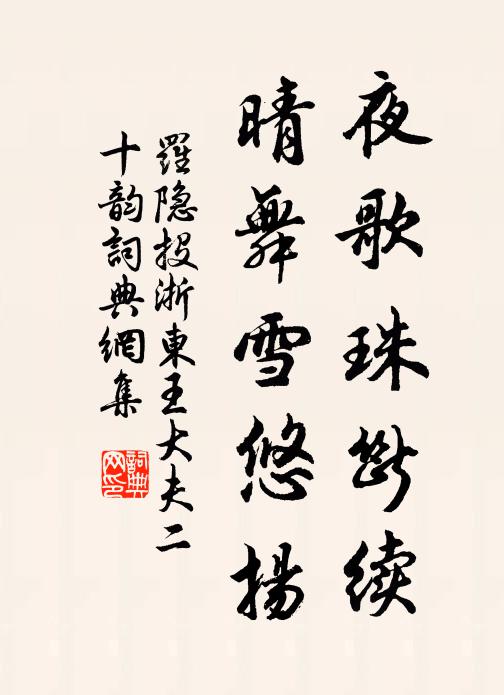 夜歌珠断续
晴舞雪悠揚
羅隐投浙東王大夫二
十韵詞典網集
詞典
网印